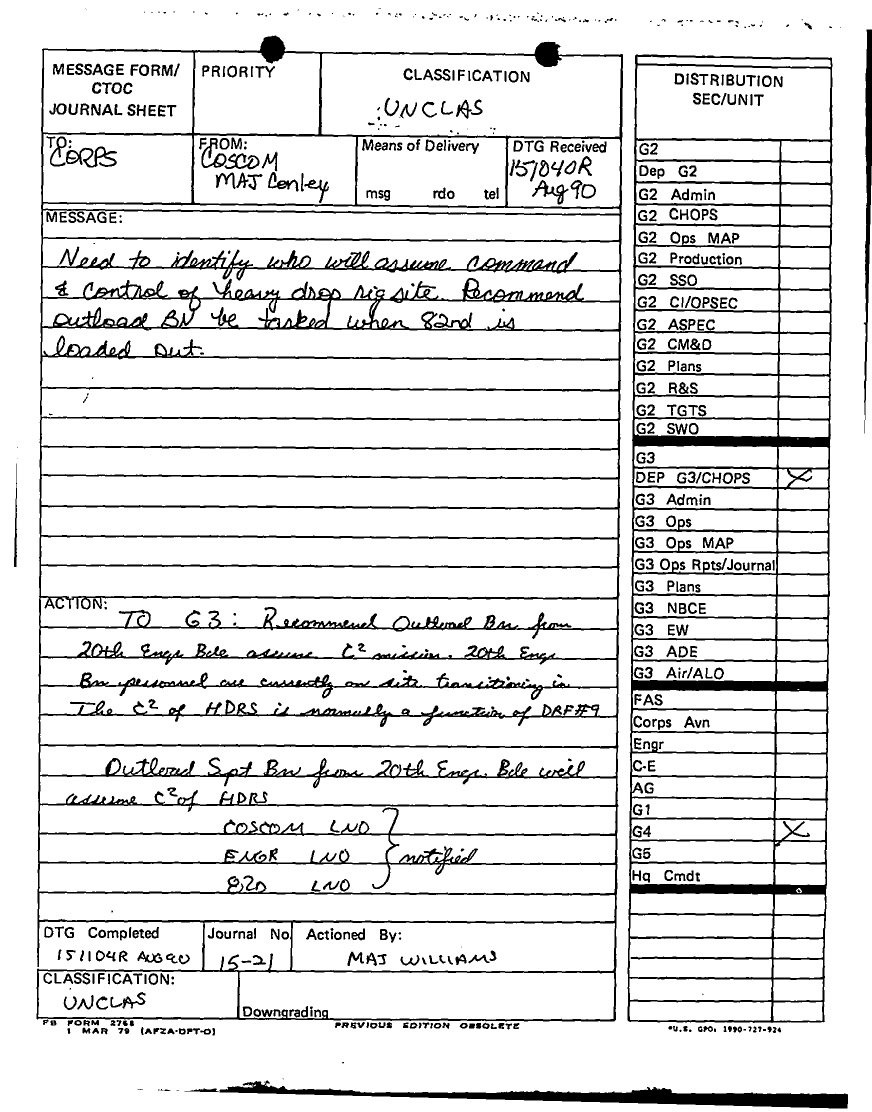 MESSAGE FORM/
CTOC
JOURNAL SHEET
PRIORITY
CLASSIFICATION
UNCLAS
TO:
CORPS
FROM:
COSCOM
MAJ Conley
Means of Delivery
msg rdo tel
DTG Received
151040R
Aug 90
MESSAGE:
Need to identify who will assume command
& control of heavy drop rig site. Recommend
Outload BN be tasked when 82nd is
loaded out.
ACTION:
TO G3: Recommend Outload Bn from
20th Engr Bde assume C² mission. 20th Engr
Bn personnel are currently on site transitioning in.
The C² of HDRS is normally a function of DRF#9
Outload Spt Bn from 20th Engr. Bde will
assume C² of HDRS
COSCOM LNO
ENGR LNO
82D LNO
notified
DTG Completed
151104R AUG 90
Journal No
15-21
Actioned By:
MAJ WILLIAMS
CLASSIFICATION:
UNCLAS
Downgrading
FB FORM 2768
1 MAR 79 (AFZA-DPT-O)
PREVIOUS EDITION OBSOLETE
DISTRIBUTION
SEC/UNIT
G2
Dep G2
G2 Admin
G2 CHOPS
G2 Ops MAP
G2 Production
G2 SSO
G2 CI/OPSEC
G2 ASPEC
G2 CM&D
G2 Plans
G2 R&S
G2 TGTS
G2 SWO
G3
DEP G3/CHOPS X
G3 Admin
G3 Ops
G3 Ops MAP
G3 Ops Rpts/Journal
G3 Plans
G3 NBCE
G3 EW
G3 ADE
G3 Air/ALO
FAS
Corps Avn
Engr
C-E
AG
G1
G4 X
G5
Hq Cmdt
*U.S. GPO: 1990-727-924